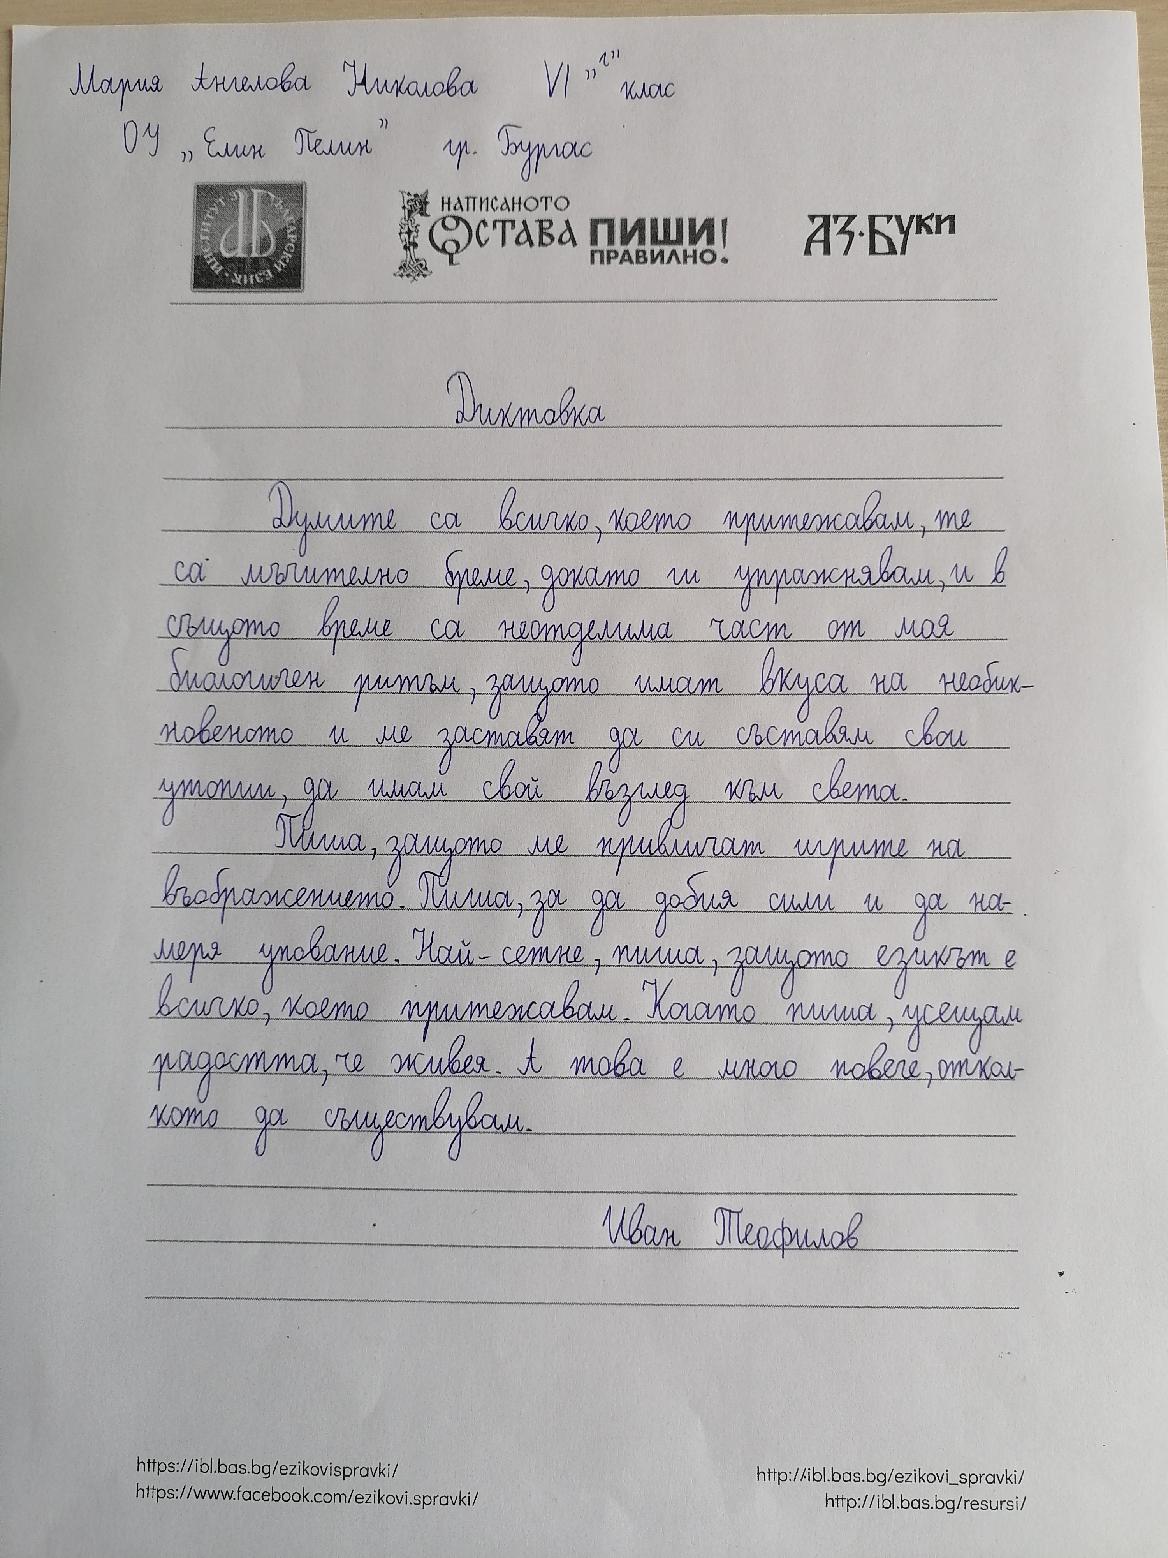 Мария Ангелова Николова VI "г" клас
ОУ „Елин Пелин” гр. Бургас
ИНСТИТУТ ЗА БЪЛГАРСКИ ЕЗИК
НАПИСАНОТО ОСТАВА ПИШИ ПРАВИЛНО!
АЗ·БУКИ
Диктовка
Думите са всичко, което притежавам, те
са мъчително бреме, докато ги упражнявам, и в
същото време са неотделима част от моя
биологичен ритъм, защото имат вкуса на необик-
новеното и ме заставят да си съставям свои
утопии, да имам свой възглед към света.
Пиша, защото ме привличат игрите на
въображението. Пиша, за да добия сили и да на-
меря упование. Най-сетне, пиша, защото езикът е
всичко, което притежавам. Когато пиша, усещам
радостта, че живея. А това е много повече, откол-
кото да съществувам.
Иван Теофилов
https://ibl.bas.bg/ezikovispravki/
https://www.facebook.com/ezikovi.spravki/
http://ibl.bas.bg/ezikovi_spravki/
http://ibl.bas.bg/resursi/